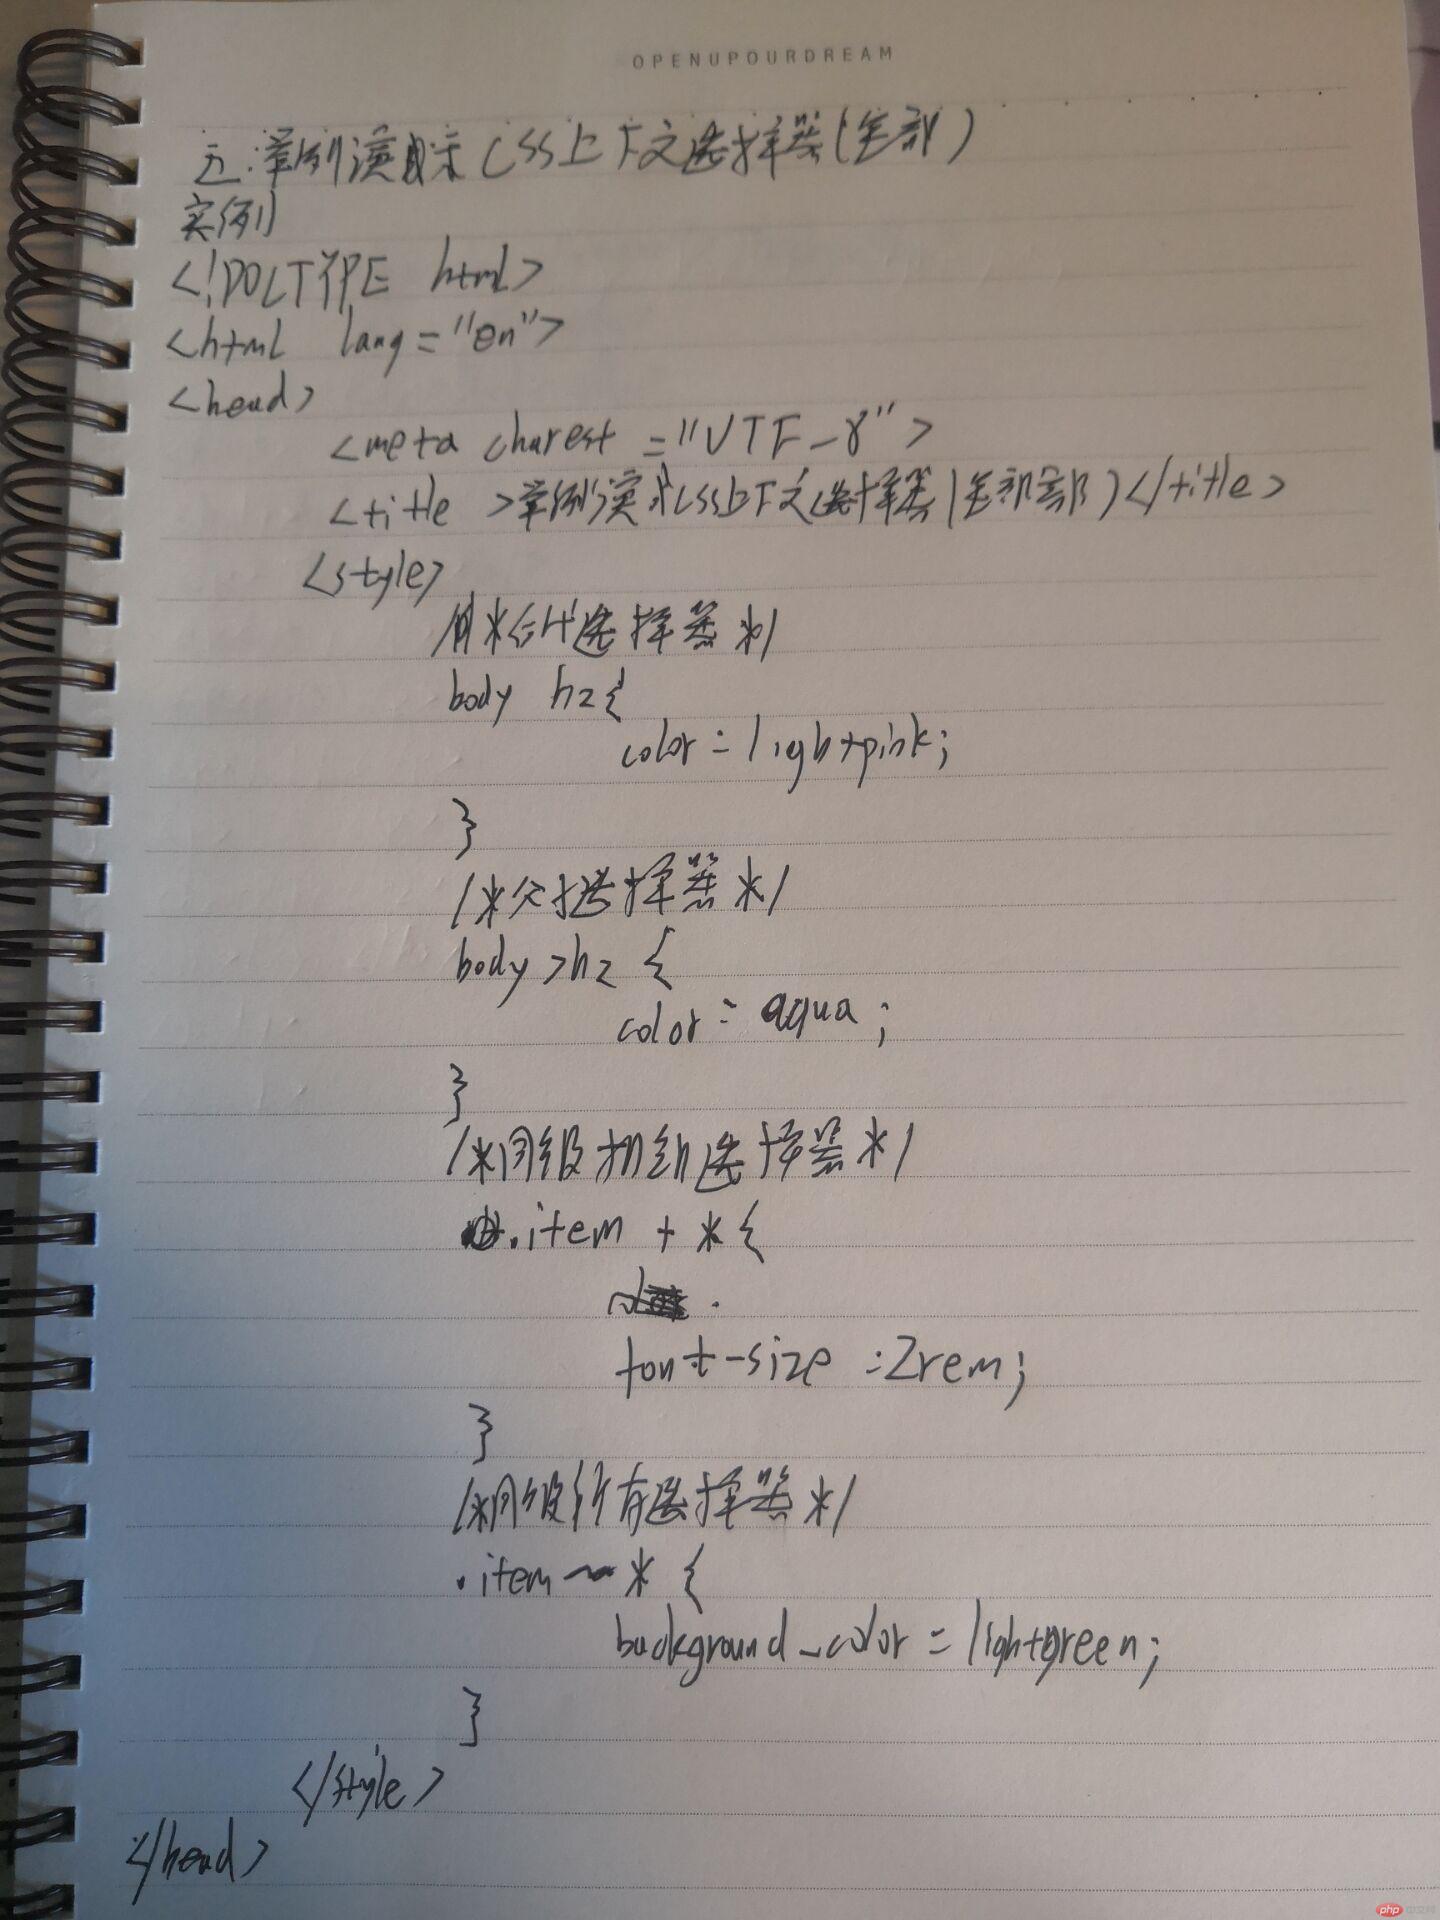 OPENUPOURDREAM
五.举例演示CSS上下文选择器(全部)
实例
<!DOCTYPE html>
<html lang="en">
<head>
<meta charest="UTF-8">
<title>举例演示CSS上下文选择器(全部部)</title>
<style>
/*后代选择器*/
body h2{
color:lightpink;
}
/*父子选择器*/
body>h2 {
color:aqua;
}
/*同级相邻选择器*/
.item + *{
font-size:2rem;
}
/*同级所有选择器*/
.item ~ * {
background-color=lightgreen;
}
</style>
</head>
php